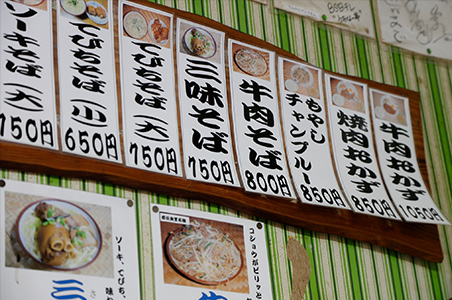 ソーキそば(大)
750円
てびちそば(小)
650円
てびちそば(大)
750円
三味そば
750円
牛肉そば
800円
もやし
チャンプルー
850円
焼肉おかず
850円
牛肉おかず
1050円
ソーキ、てびち、
三
コショウがピリッと